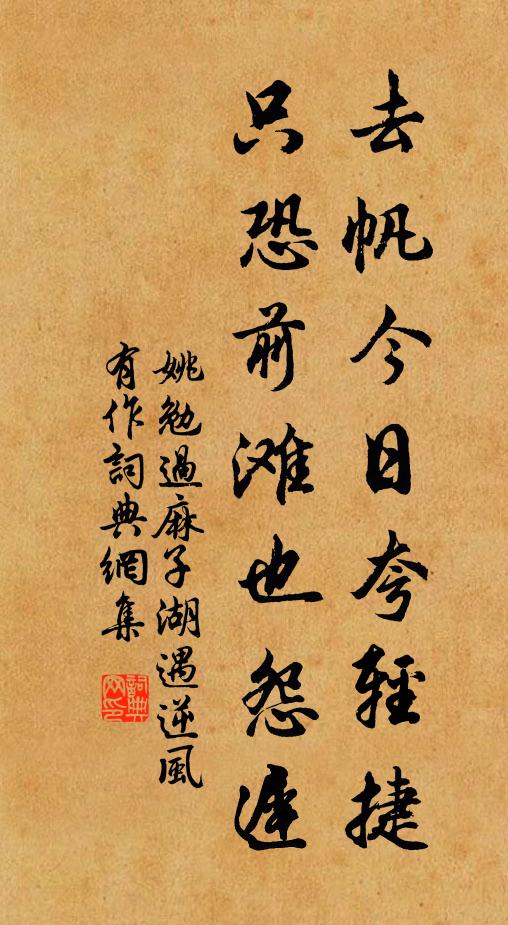 去帆今日夸輕捷
只恐前滩也怨遲
姚勉過麻子湖遇逆風
有作詞典網集
詞典網印